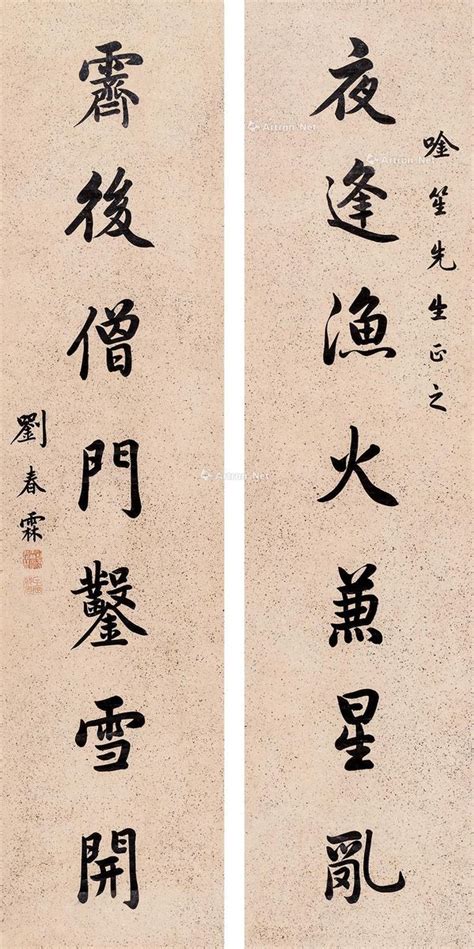 唫笙先生正之
夜逢漁火兼星亂
霽後僧門鑿雪開
劉春霖
Artron.Net
Artron.Net
Artron.Net